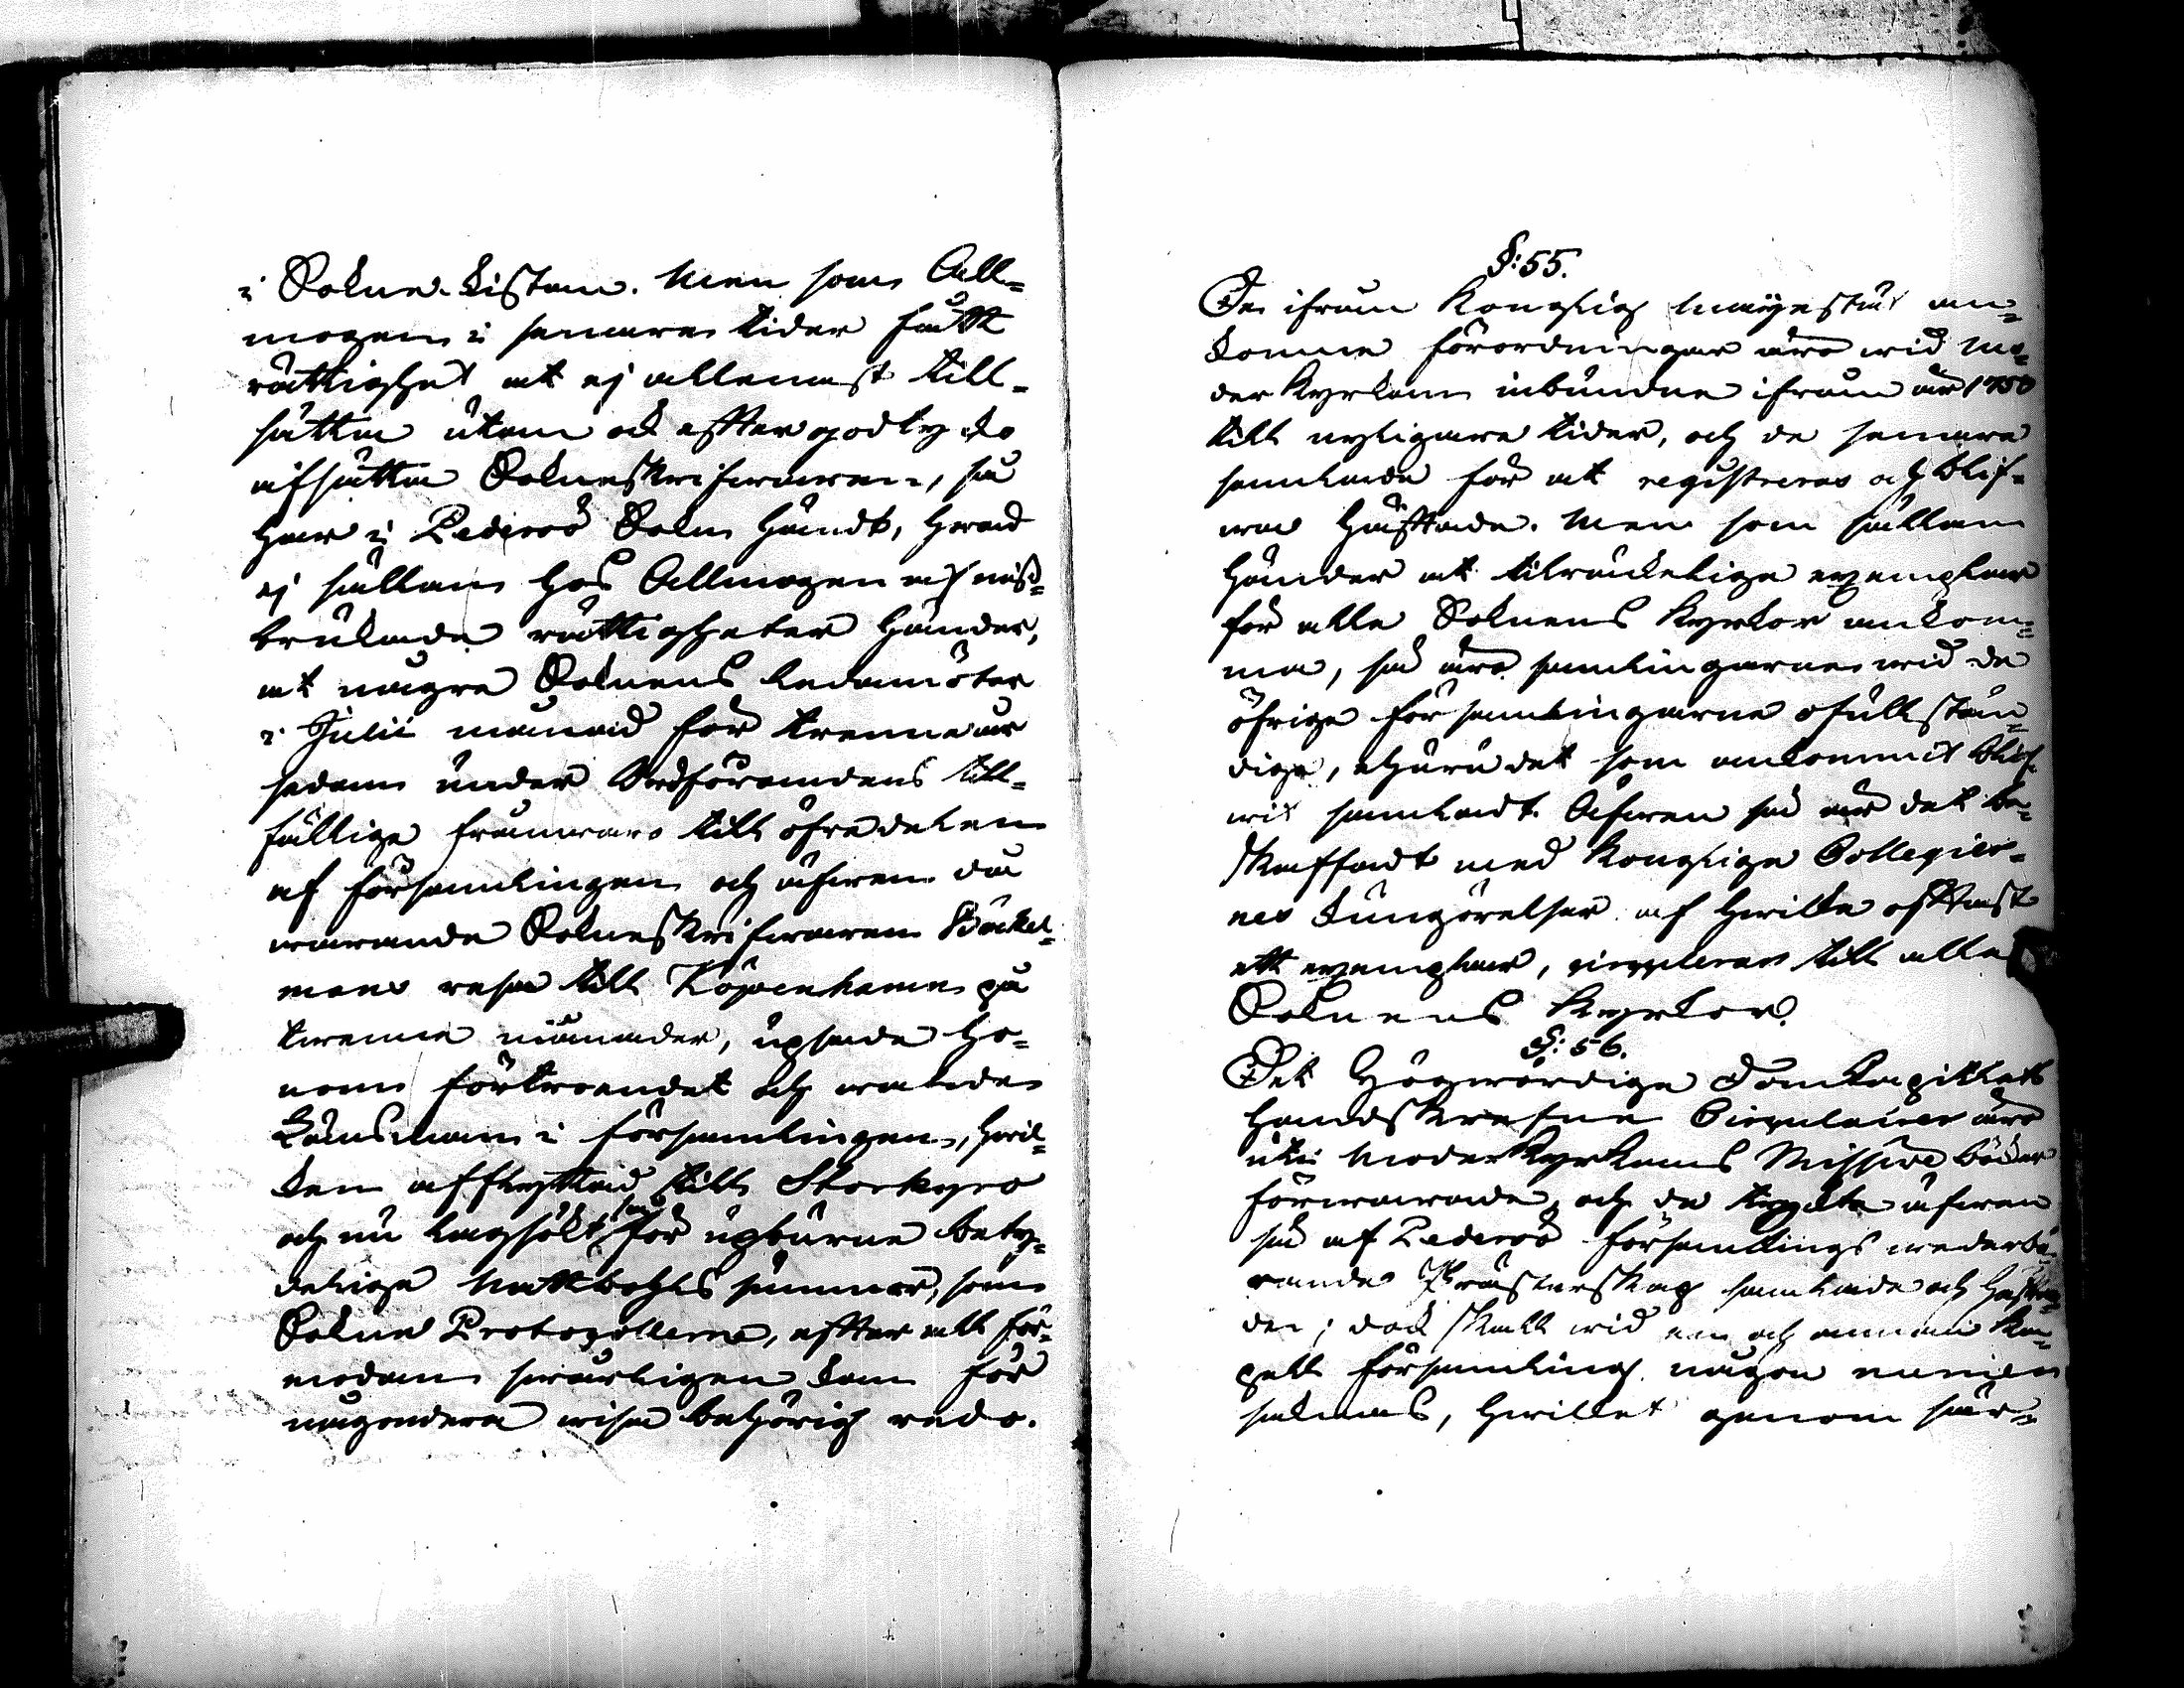 i Sokne-kistan. Men som All=
mogen i senare tider fått
rättighet att ej allenast till-
sätta utan ock efter godtycke
afsätta Sokneskrifwaren, så
har i Pedersö Sokn händt, hwad
ej sällan hos Allmogen af miss=
brukade rättigheter händer,
at några Soknens ledamöter
i Julii månad för trenne år
sedan under Ordförandens till=
fällige frånwaro till öfre delen
af församlingen och äfwen då
warande Sokneskrifwaren Böckel=
mans resa till Köpenhamn på
trenne månader, upsade ho=
nom förtroendet och walde
Länsman i församlingen, hwil=
ken afflyttad till Storkyro
och nu lagsökt som för upburne bety=
delige Mattbohls summor, som
Sokne Protocollerne, efter allt för=
modan swårligen kan för
någondera wisa behörig redo.
§: 55.
De ifrån Konglig Mayestät an=
komne förordningar äro wid Mo=
derkyrkan inbundne ifrån år 1750
till nyligare tider, och de senare
samlade för att registreras och blif=
wa häftade. Men som sällan
händer at tilräckelige exemplar
för alla Soknens Kyrkor ankom=
ma, så äro samlingarne wid de
öfrige församlingarne ofullstän=
dige, ehuru det som ankommit blif=
wit samladt. Äfwen så är det be=
skaffadt med Konglige Collegier=
nes kungörelser af hwilka oftast
ett exemplar, circulerar till alla
Soknens Kyrkor.
§: 56.
Det Högwördige Domkapitlets
handskrefne Circulairer äro
uti Moderkyrkans Missive böcker
förwarade, och de tryckta äfwen
så af Pedersö församlings wederbö=
rande Prästerskap samlade och häfta=
de; dock skall wid en och annan Ka=
pell församling någon numer
saknas, hwilket genom sär=